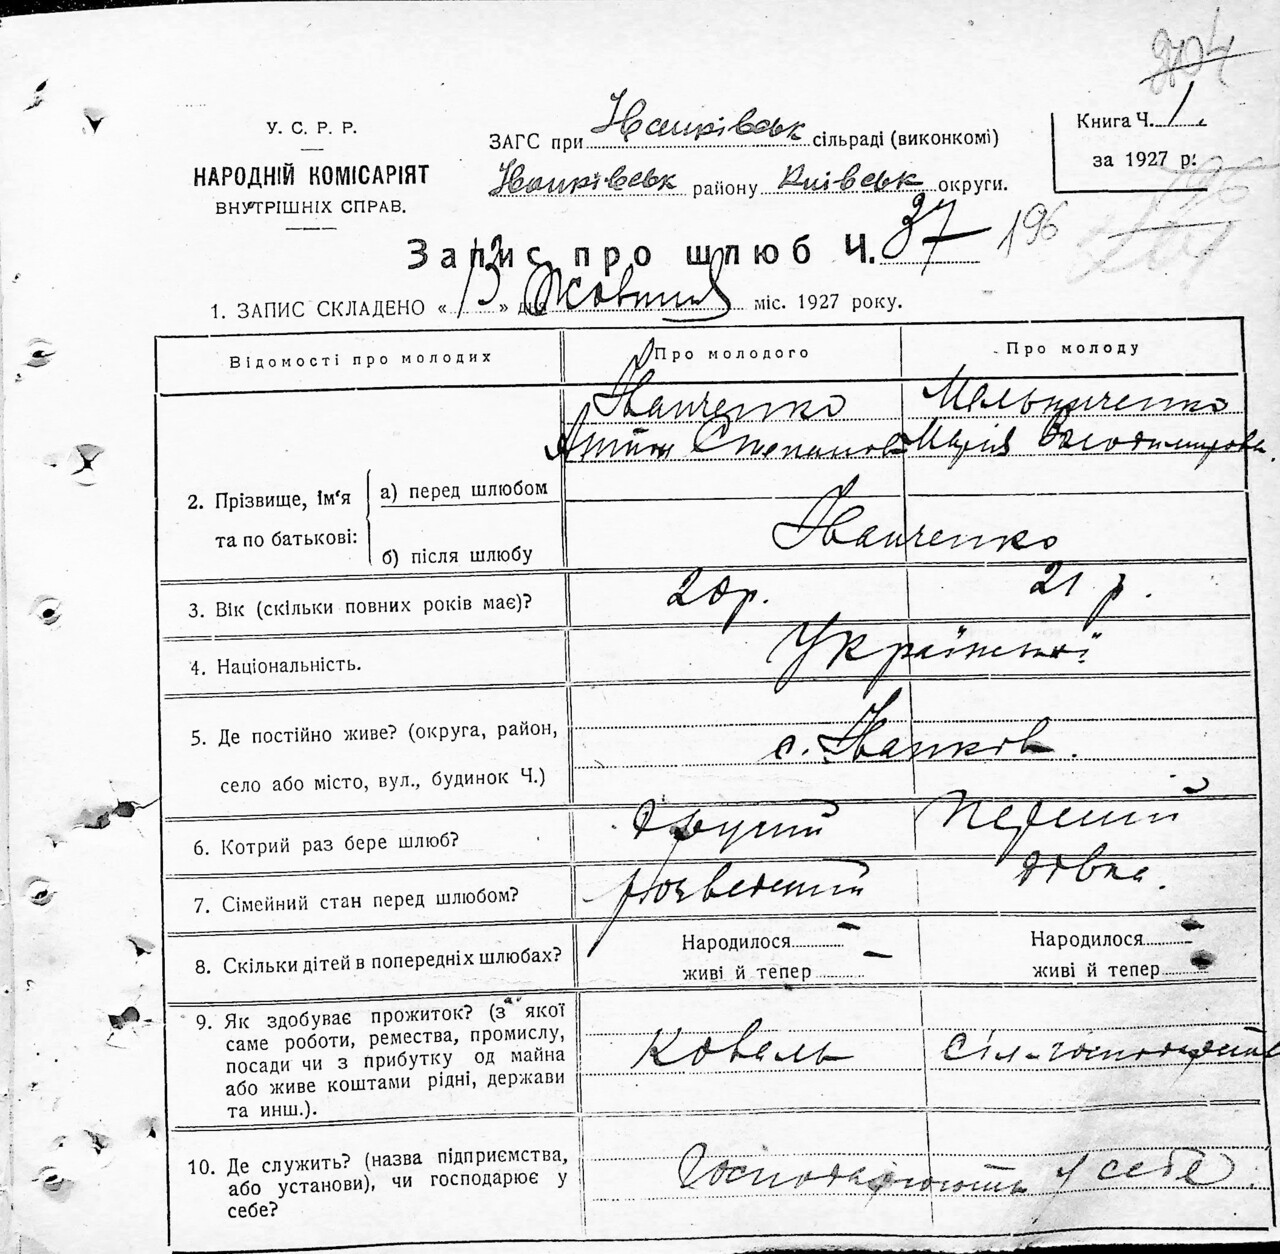 204
У. С. Р. Р.
НАРОДНІЙ КОМІСАРІЯТ
ВНУТРІШНІХ СПРАВ.
ЗАГС при Іванківськ сільраді (виконкомі)
Іванківськ району Київськ округи.
Книга Ч. 1.
за 1927 р.
196
Запис про шлюб Ч. 37
1. ЗАПИС СКЛАДЕНО «13» дня Жовтня міс. 1927 року.
Відомості про молодих Про молодого Про молоду
Іванченко Мельниченко
Антон Степанов Марія Володимировна.
2. Прізвище, ім'я та по батькові:
а) перед шлюбом
б) після шлюбу
Іванченко
3. Вік (скільки повних років має)? 20 р. 21 р.
4. Національність. Українські
5. Де постійно живе? (округа, район,
село або місто, вул., будинок Ч.)
с. Іванков.
6. Котрий раз бере шлюб? Другий Перший
7. Сімейний стан перед шлюбом? розведений дівка.
8. Скільки дітей в попередніх шлюбах? Народилося – Народилося –
живі й тепер – живі й тепер –
9. Як здобуває прожиток? (з якої
саме роботи, ремества, промислу,
посади чи з прибутку од майна
або живе коштами рідні, держави
та инш.).
Коваль Сіл-господарств
10. Де служить? (назва підприємства,
або установи), чи господарює у
себе?
Господарюють у себе.